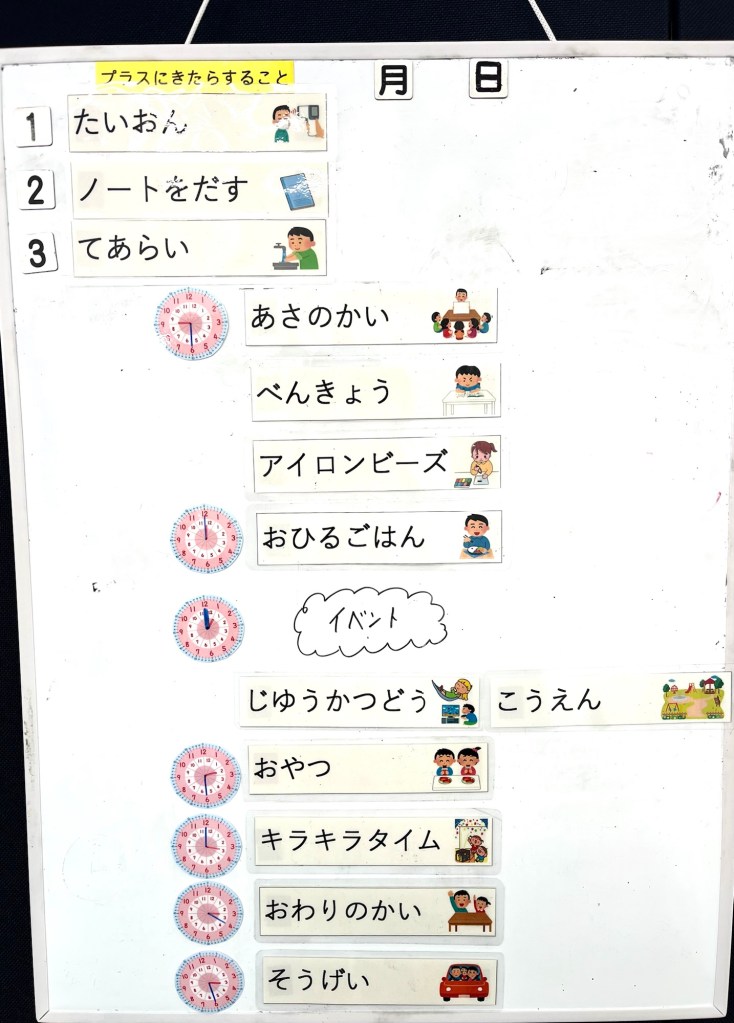 プラスにきたらすること
月 日
1 たいおん
2 ノートをだす
3 てあらい
あさのかい
べんきょう
アイロンビーズ
おひるごはん
イベント
じゆうかつどう こうえん
おやつ
キラキラタイム
おわりのかい
そうげい